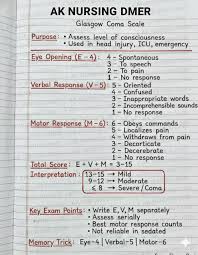 AK NURSING DMER
Glasgow Coma Scale
Purpose: • Assess level of consciousness
• Used in head injury, ICU, emergency
Eye Opening (E-4): 4 - Spontaneous
3 - To speech
2 - To pain
1 - No response
Verbal Response (V-5): 5 - Oriented
4 - Confused
3 - Inappropriate words
2 - Incomprehensible sounds
1 - No response
Motor Response (M-6): 6 - Obeys commands
5 - Localizes pain
4 - Withdraws from pain
3 - Decorticate
2 - Decerebrate
1 - No response
Total Score: E + V + M = 3-15
Interpretation: 13-15 → Mild
9-12 → Moderate
≤ 8 → Severe/Coma
Key Exam Points: • Write E, V, M separately
• Assess serially
• Best motor response counts
• Not reliable in sedated
Memory Trick: Eye-4 | Verbal-5 | Motor-6